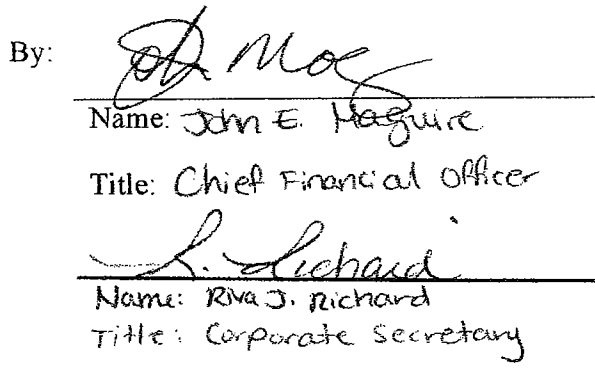 By:
Name: John E. Maguire
Title: Chief Financial Officer
R. Richard
Name: Riva J. Richard
Title: Corporate Secretary